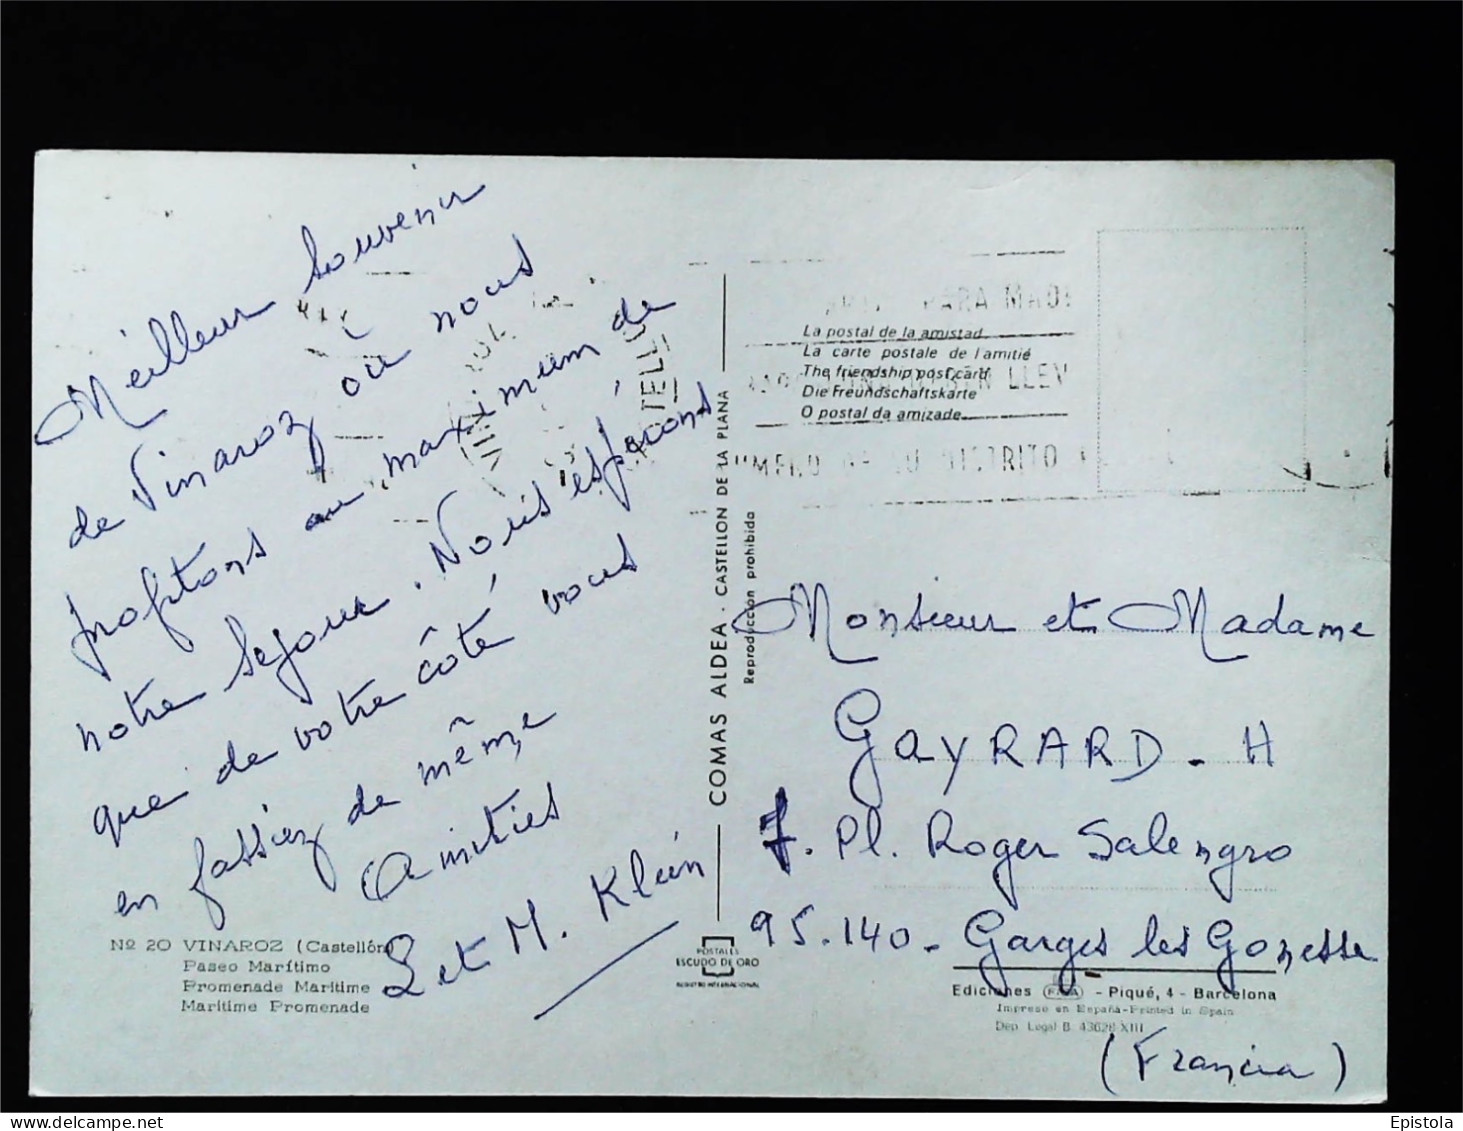 Meilleur souvenir
de Vinaroz où nous
profitons au maximum de
notre séjour. Nous espérons
que de votre côté vous
en fassiez de même
Amitiés
L et M. Klein
Nº 20 VINAROZ (Castellón)
Paseo Marítimo
Promenade Maritime
Maritime Promenade
COMAS ALDEA · CASTELLON DE LA PLANA
Reproducción prohibida
POSTALES
ESCUDO DE ORO
REGISTRO INTERNACIONAL
PARA MADR
LLEV
DISTRITO
La postal de la amistad
La carte postale de l'amitié
The friendship post card
Die Freundschaftskarte
O postal da amizade
Monsieur et Madame
GAYRARD - H
7. Pl. Roger Salengro
95.140 - Garges les Gonesse
Ediciones FISA - Piqué, 4 - Barcelona
Impreso en España-Printed in Spain
Dep. Legal B. 43628-XIII
(Francia)
Epistola